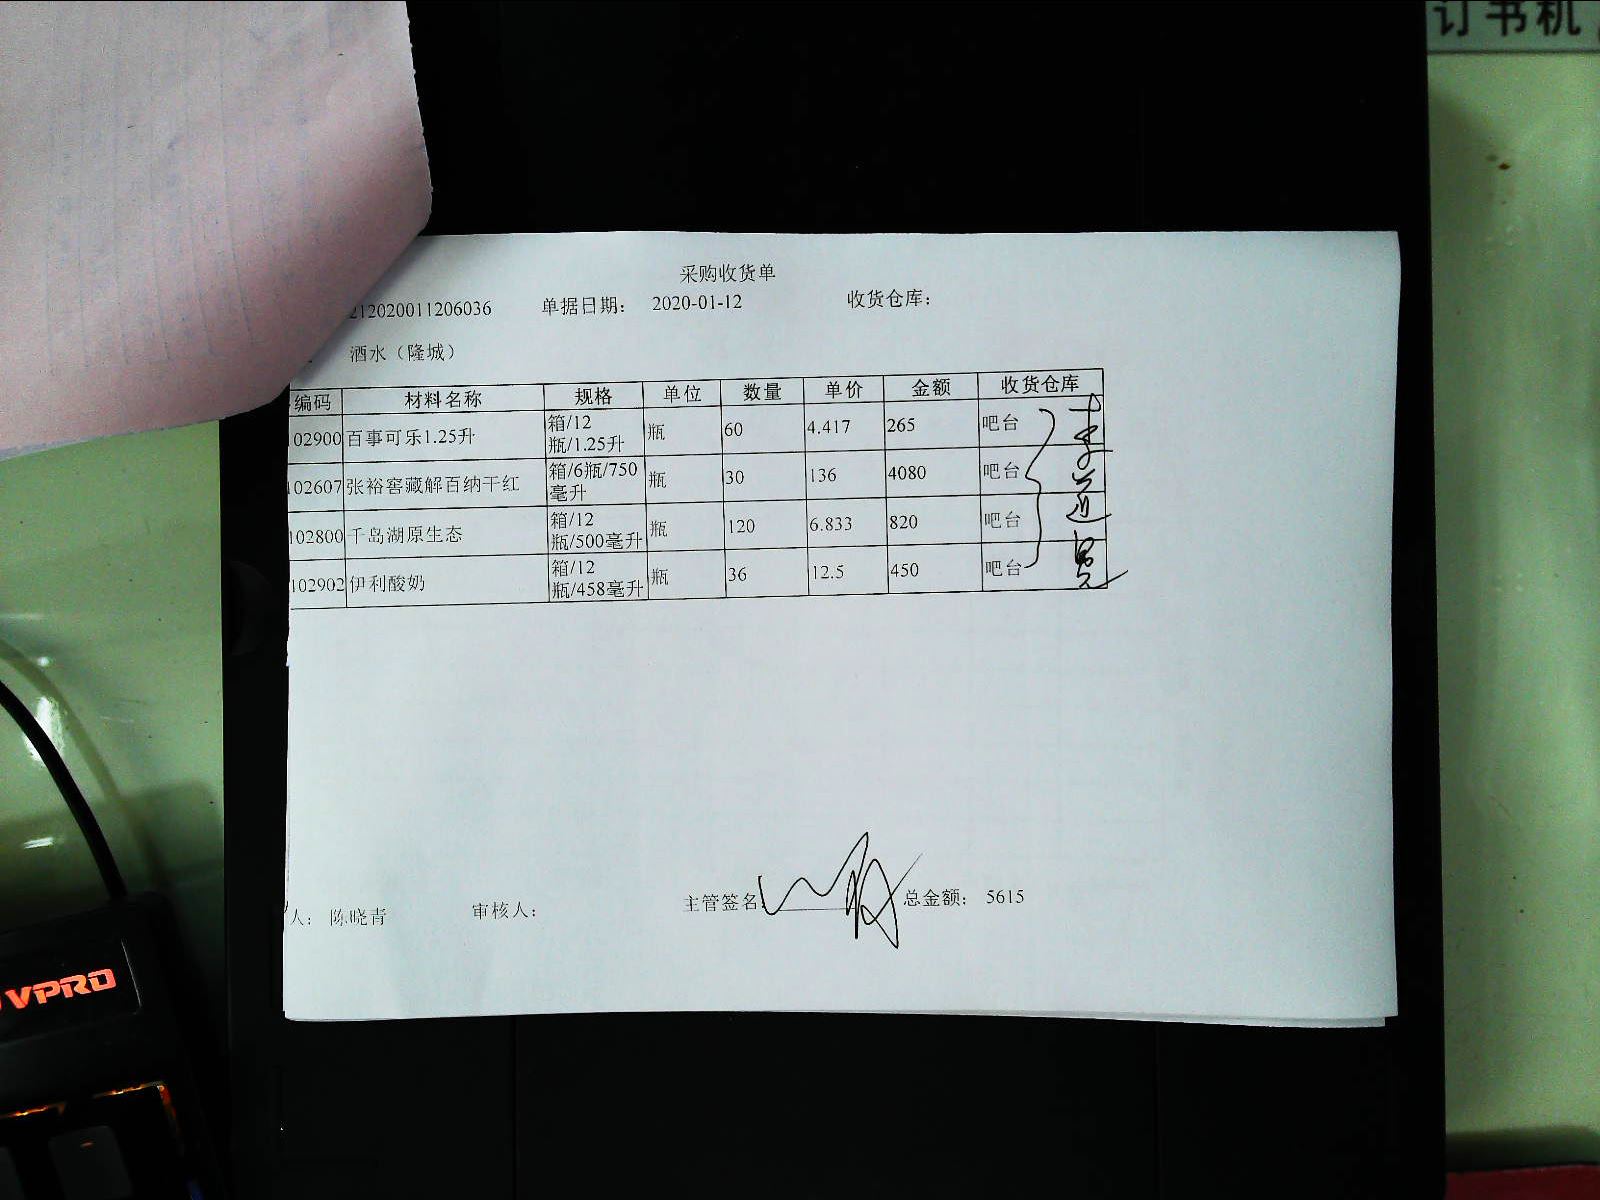 订书机
采购收货单
212020011206036 单据日期： 2020-01-12 收货仓库：
酒水（隆城）
编码 材料名称 规格 单位 数量 单价 金额 收货仓库
102900 百事可乐1.25升 箱/12瓶/1.25升 瓶 60 4.417 265 吧台
102607 张裕窖藏解百纳干红 箱/6瓶/750毫升 瓶 30 136 4080 吧台
102800 千岛湖原生态 箱/12瓶/500毫升 瓶 120 6.833 820 吧台
102902 伊利酸奶 箱/12瓶/458毫升 瓶 36 12.5 450 吧台
人： 陈晓青 审核人： 主管签名： 总金额： 5615
VPRO